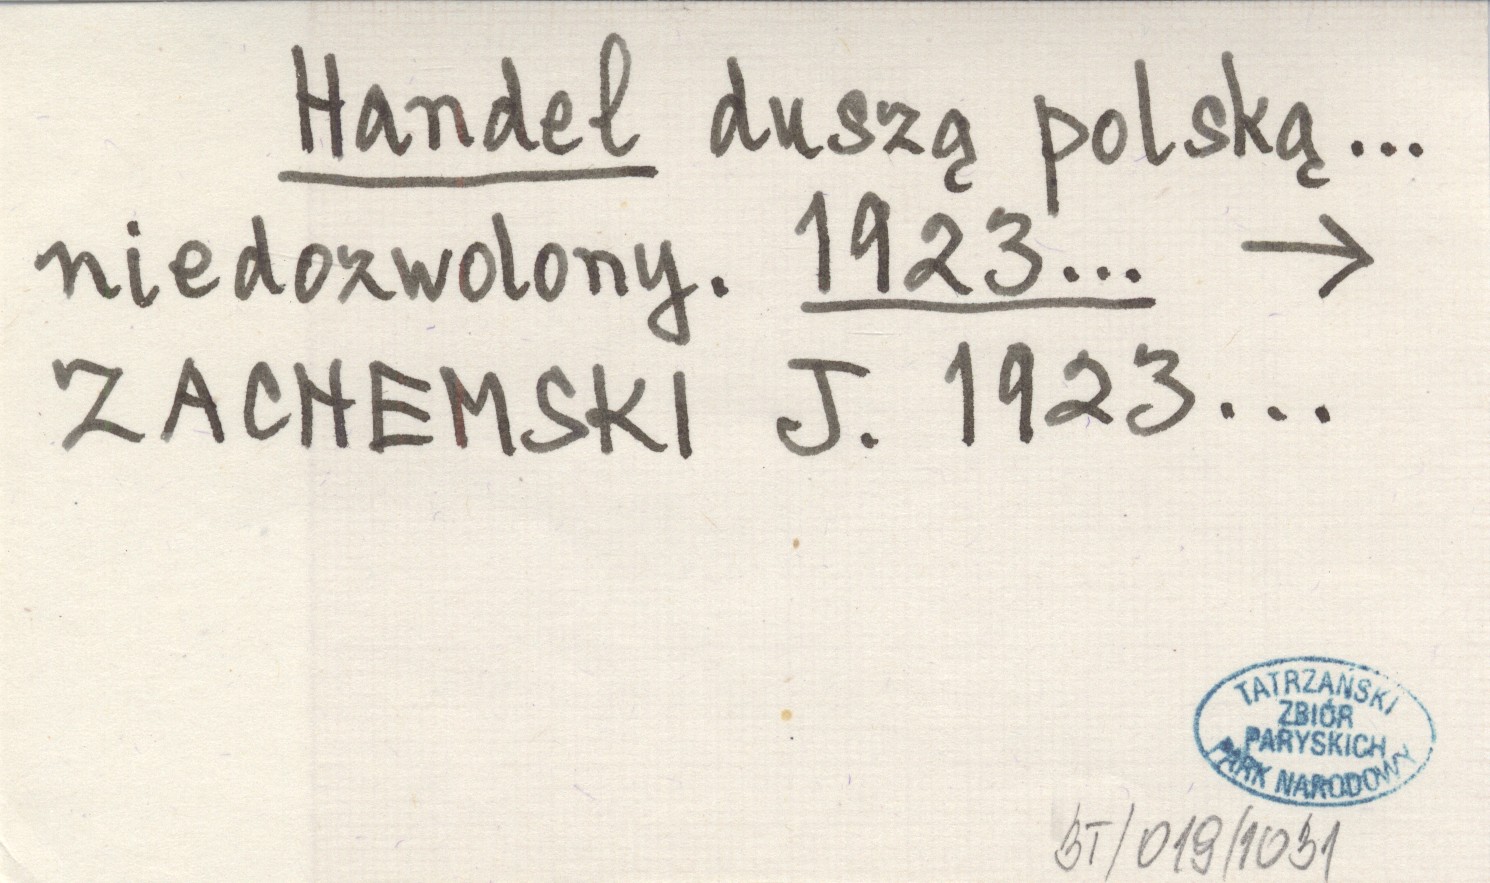 Handel duszą polską...
niedozwolony. 1923... →
ZACHEMSKI J. 1923...
TATRZAŃSKI
ZBIÓR
PARYSKICH
PARK NARODOWY
BT/019/1031